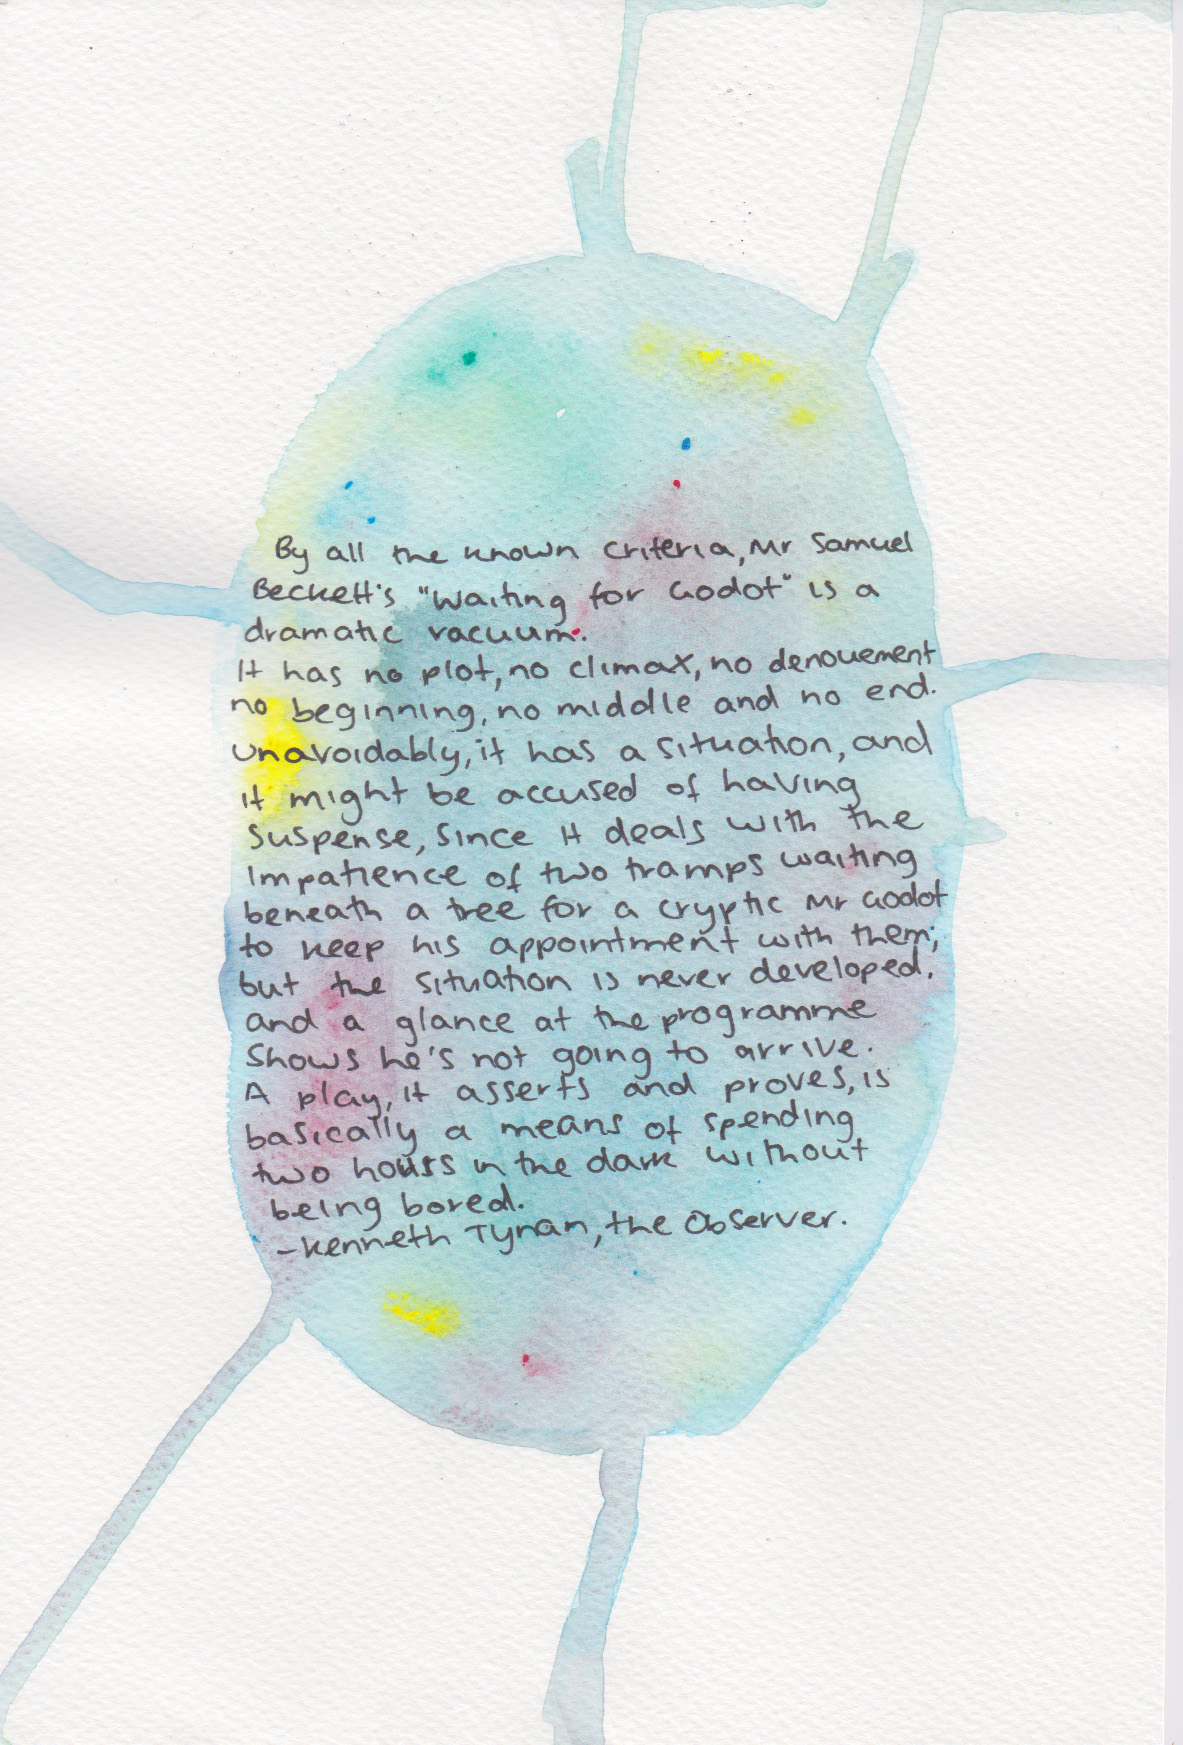 By all the known criteria, Mr Samuel
Beckett's "Waiting for Godot" is a
dramatic vacuum.
It has no plot, no climax, no denouement
no beginning, no middle and no end.
Unavoidably, it has a situation, and
it might be accused of having
suspense, since it deals with the
impatience of two tramps waiting
beneath a tree for a cryptic Mr Godot
to keep his appointment with them;
but the situation is never developed.
and a glance at the programme
shows he's not going to arrive.
A play, it asserts and proves, is
basically a means of spending
two hours in the dark without
being bored.
- Kenneth Tynan, the Observer.